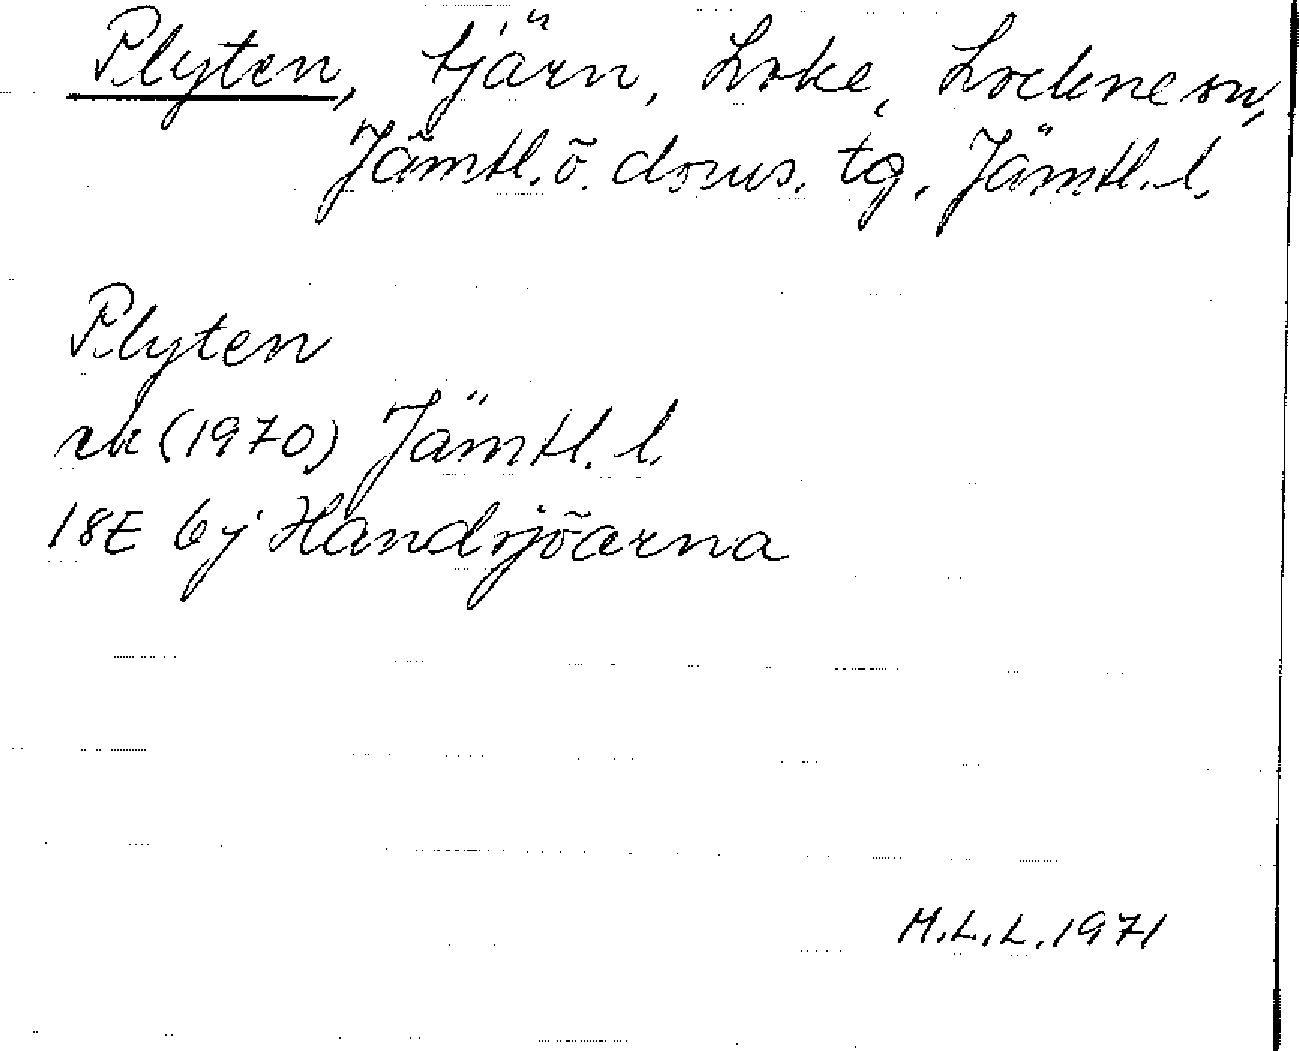 Plyten, tjärn, Loke, Lockne sn,
Jämtl. ö. doms. tg. Jämtl. l.
Plyten
rk (1970) Jämtl. l.
18E 6j Handsjöarna
M.L.L. 1971